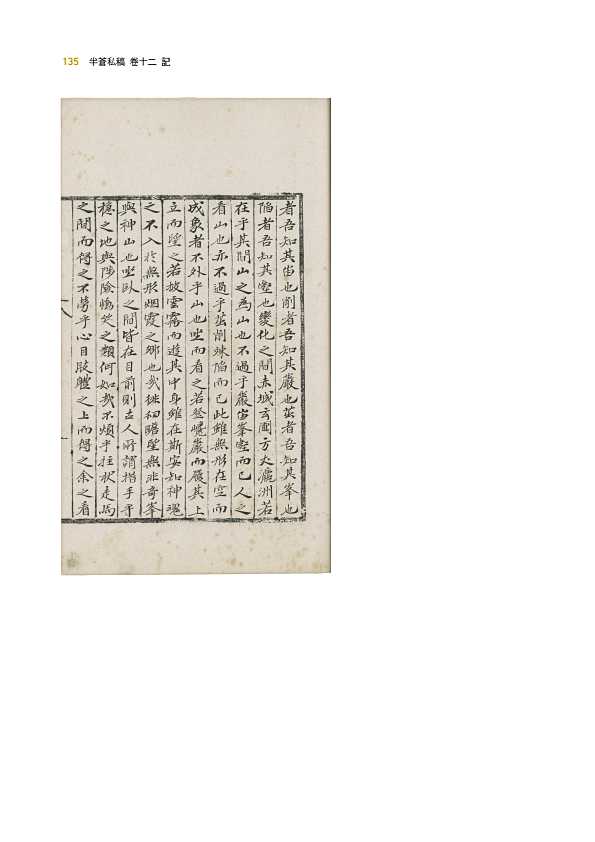 135 半蒼私稿 卷十二 記
者吾知其峀也削者吾知其巖也茁者吾知其峯也
陷者吾知其壑也變化之間赤城玄圃方丈瀛洲若
在乎其間山之爲山也不過乎巖峀峯壑而已人之
看山也亦不過乎茁削竦陷而已此雖無形在空而
成象者不外乎山也坐而看之若登巉巖而履其上
立而望之若放雲霧而遊其中身雖在斯安知神魂
之不入於無形烟霞之鄉也哉徘徊瞻望無非奇峯
與神山也坐卧之間皆在目前則古人所謂指手平
穩之地與陟險悔笑之類何如哉不煩乎拄杖走馬
之間而得之不勞乎心目肢軆之上而得之余之看